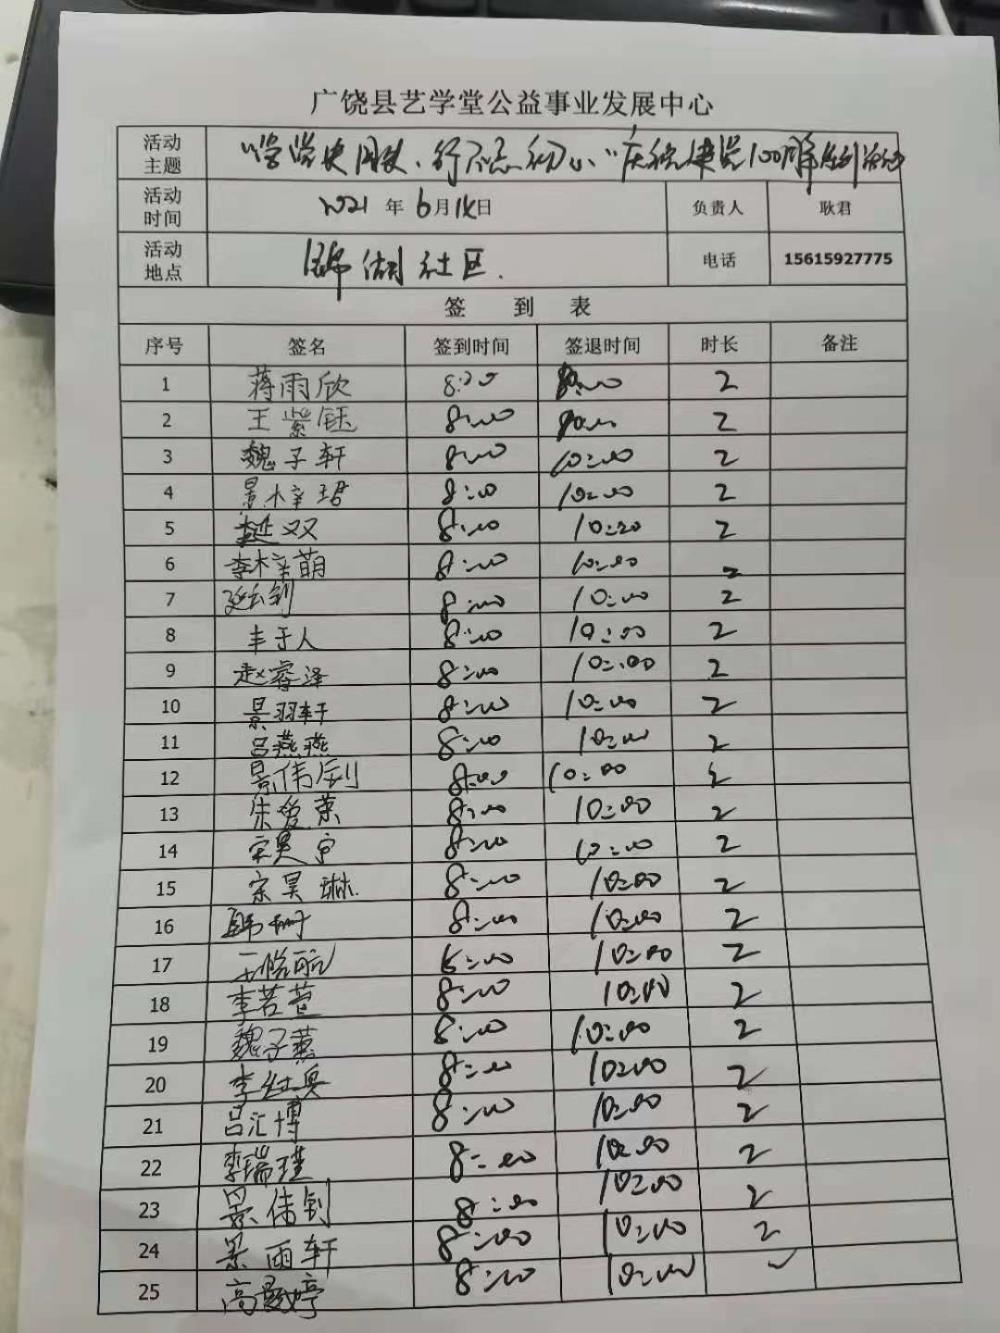 广饶县艺学堂公益事业发展中心
活动主题 "学党史 行不忘初心"庆祝建党100周年系列活动
活动时间 2021年6月14日 负责人 耿君
活动地点 锦湖社区. 电话 15615927775
签到表
序号 签名 签到时间 签退时间 时长 备注
1 蒋雨欣 8:20 2
2 王紫钰 8:00 2
3 魏子轩 8:00 10:00 2
4 景梓珺 8:00 10:00 2
5 双 8:00 10:20 2
6 李梓萌 8:00 10:00 2
7 8:00 10:00 2
8 丰于人 8:00 10:00 2
9 赵睿泽 8:00 10:00 2
10 景羽轩 8:00 10:00 2
11 吕燕燕 8:00 10:00 2
12 景伟 8:00 10:00 2
13 朱爱荣 8:00 10:00 2
14 宋昊宇 8:00 10:00 2
15 宗昊琳. 8:00 10:00 2
16 韩 8:00 10:00 2
17 王悦航 8:00 10:00 2
18 李若萱 8:00 10:00 2
19 魏子 8:00 10:00 2
20 李 8:00 10:00 2
21 吕汇博 8:00 10:00 2
22 李瑞瑾 8:00 10:00 2
23 景佳钊 8:00 10:00 2
24 景雨轩 8:00 10:00 2
25 高婷 8:00 10:00